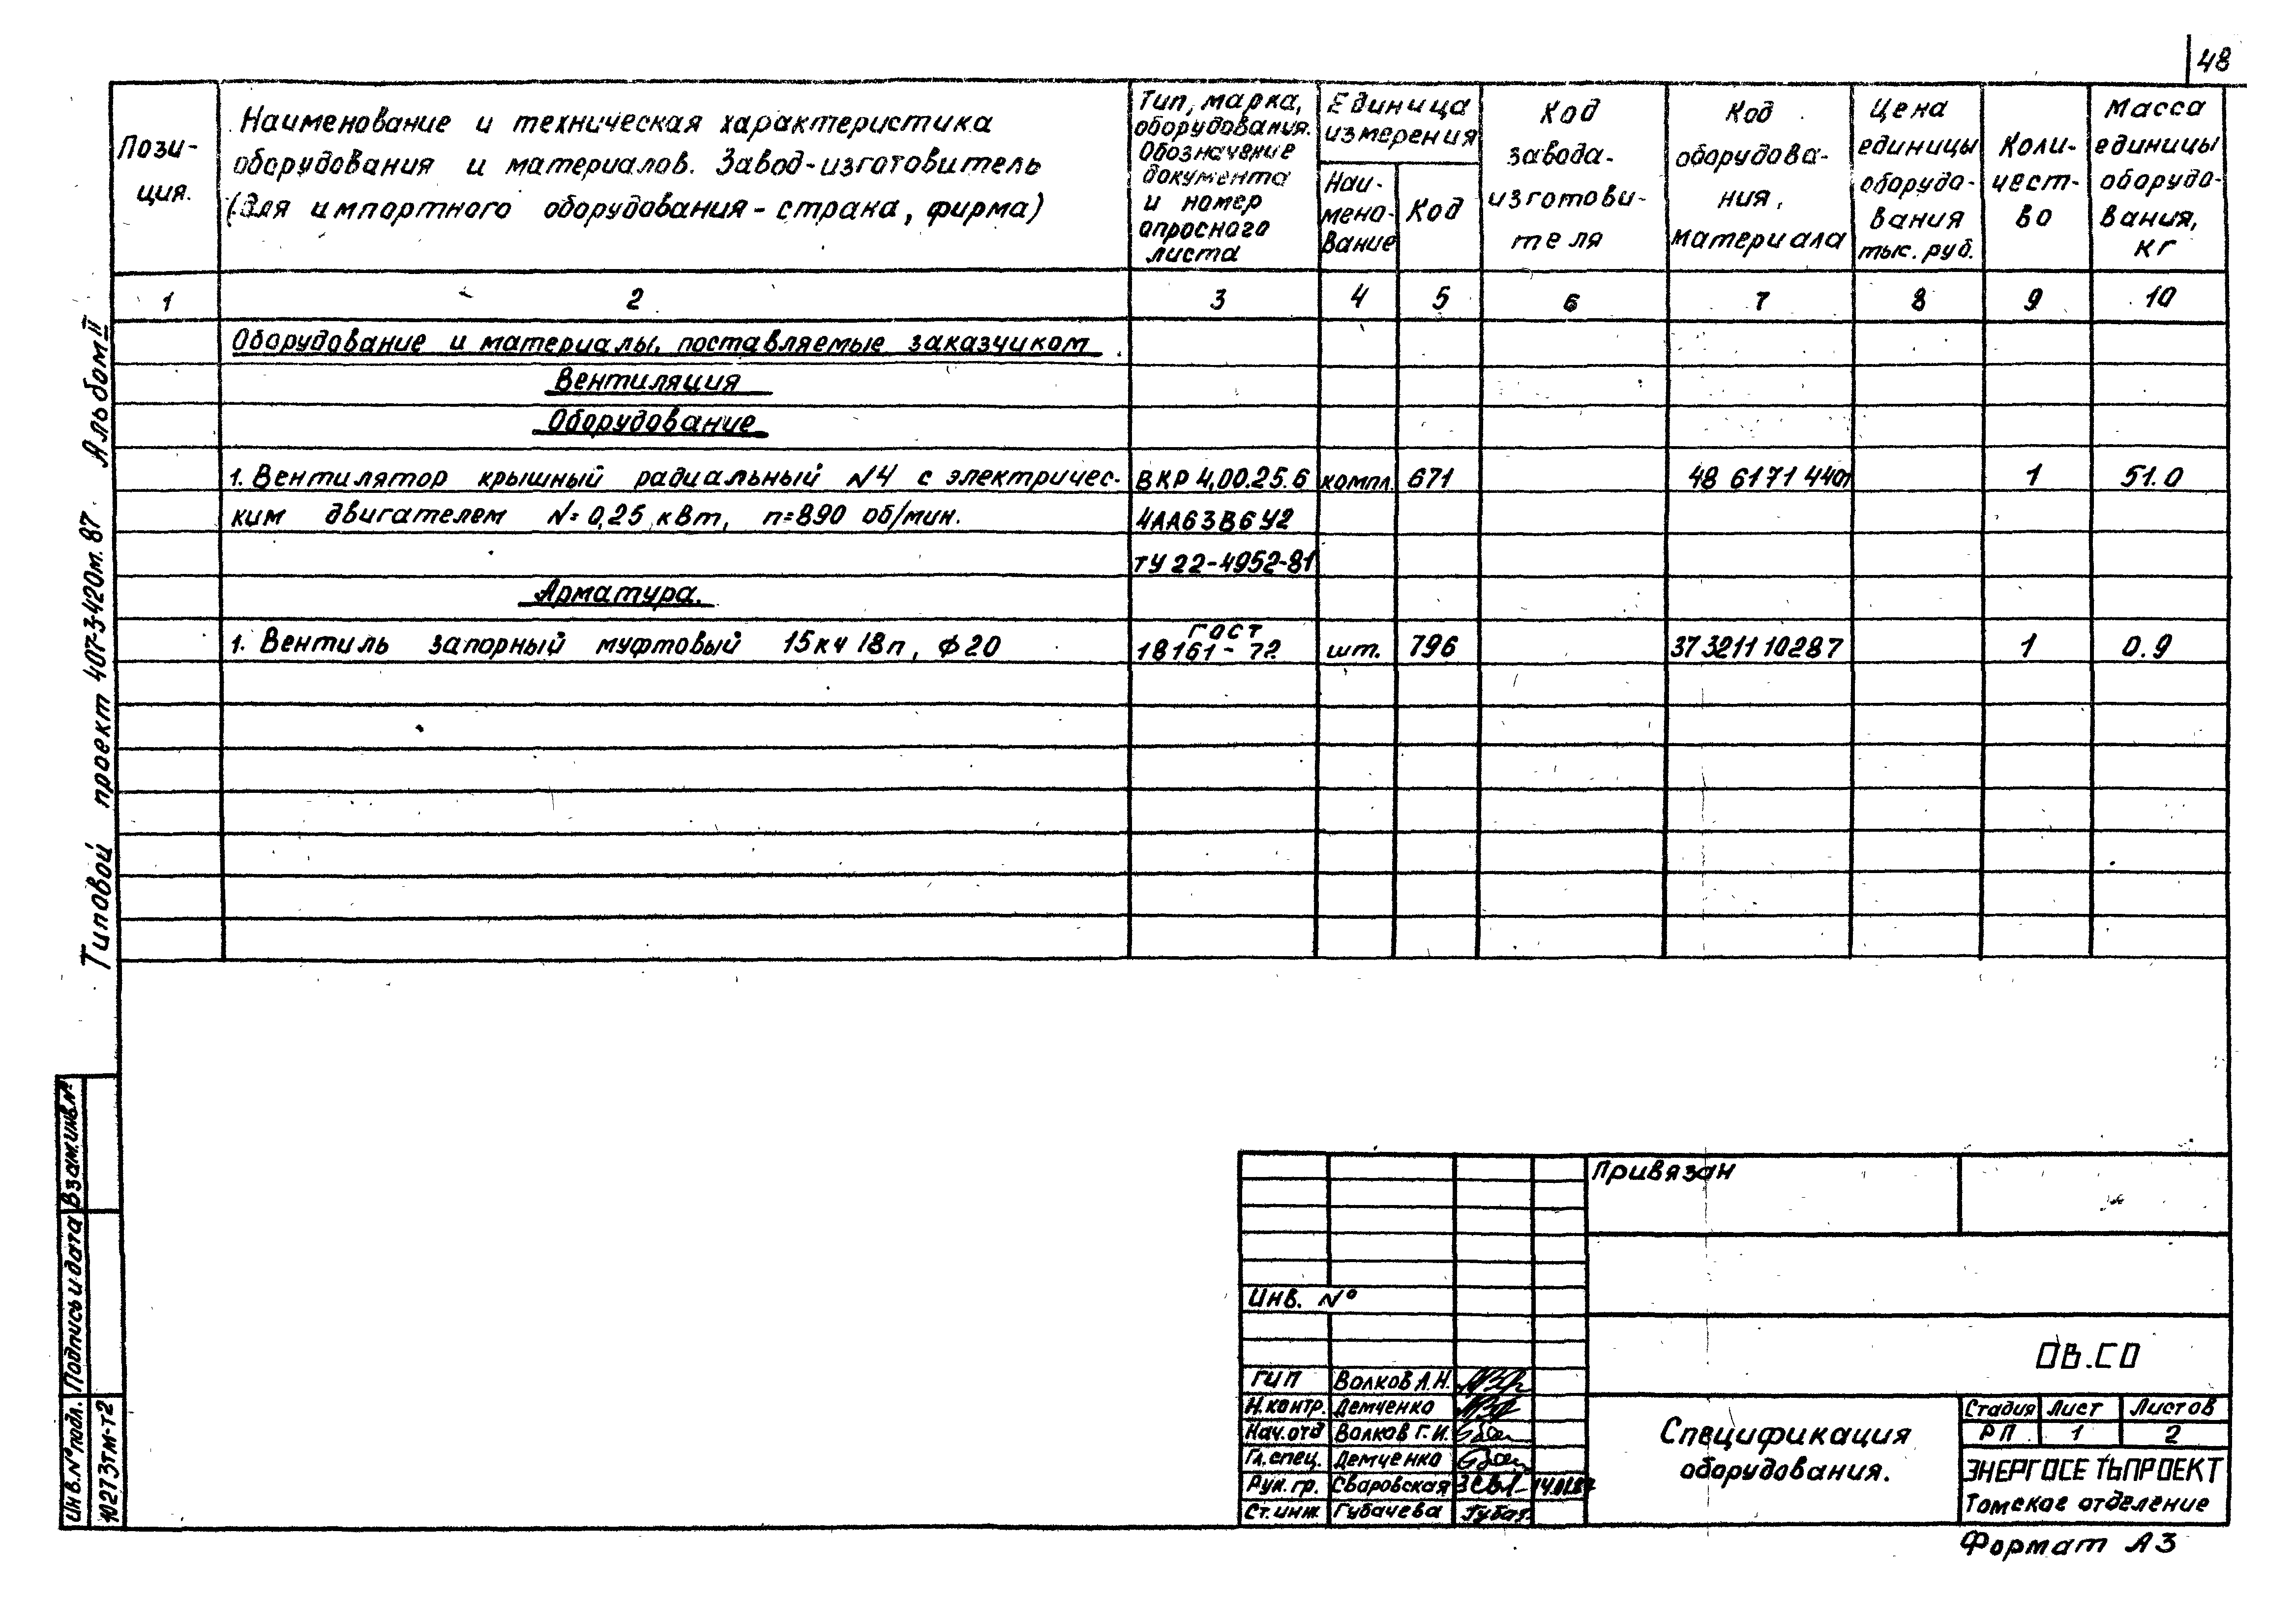 48
Пози-
ция.
Наименование и техническая характеристика
оборудования и материалов. Завод-изготовитель
(для импортного оборудования - страна, фирма)
Тип, марка,
оборудования.
Обозначение
документа
и номер
опросного
листа
Единица
измерения
Наи-
мено-
вание
Код
Код
завода-
изготови-
теля
Код
оборудова-
ния,
материала
Цена
единицы
оборудо-
вания
тыс. руб.
Коли-
чест-
во
Масса
единицы
оборудо-
вания,
кг
1 2 3 4 5 6 7 8 9 10
Оборудование и материалы, поставляемые заказчиком
Вентиляция
Оборудование
1. Вентилятор крышный радиальный N4 с электричес- ВКР 4,00.25.6 компл. 671 48 6171 4401 1 51.0
ким двигателем N=0,25 кВт, n=890 об/мин. 4АА63В6У2
ТУ 22-4952-81
Арматура.
1. Вентиль запорный муфтовый 15кч 18п, ф20 ГОСТ
18161-72 шт. 796 37 3211 10287 1 0.9
Типовой проект 407-3-420м.87 Альбом II
Взам.инв.N°
Подпись и дата
Инв.N°подл.
10273тм-т2
Привязан
Инв. N°
ОВ.СО
ГИП Волков А.Н.
Н.контр. Демченко
Нач.отд Волков Г.И.
Гл.спец. Демченко
Рук.гр. Сваровская
Ст.инж. Губачева
Спецификация
оборудования.
Стадия Лист Листов
РП 1 2
ЭНЕРГОСЕТЬПРОЕКТ
Томское отделение
Формат А3